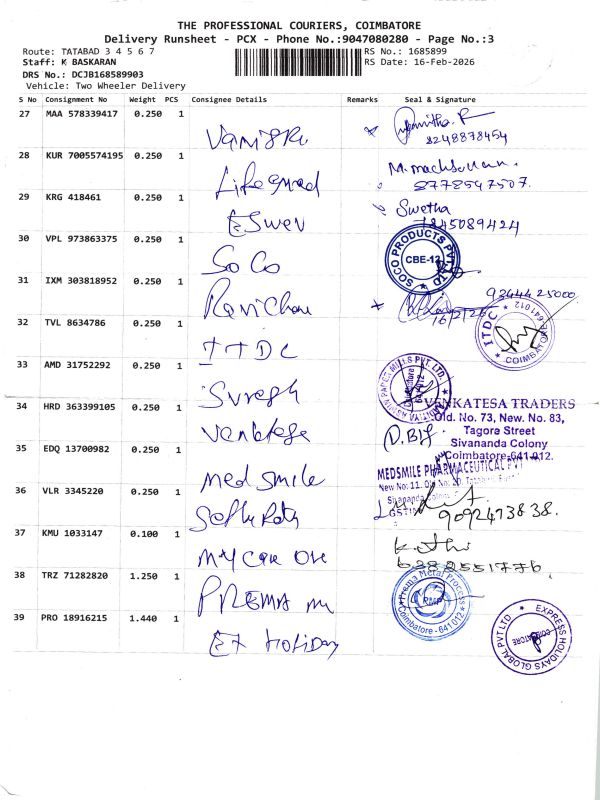 THE PROFESSIONAL COURIERS, COIMBATORE
Delivery Runsheet - PCX - Phone No.:9047080280 - Page No.:3
Route: TATABAD 3 4 5 6 7 RS No.: 1685899
Staff: K BASKARAN RS Date: 16-Feb-2026
DRS No.: DCJB168589903
Vehicle: Two Wheeler Delivery
S No Consignment No Weight PCS Consignee Details Remarks Seal & Signature
27 MAA 578339417 0.250 1
8248878454
28 KUR 7005574195 0.250 1
Lifeguard 8778547507.
29 KRG 418461 0.250 1 Swetha
Eswer 7845089424
30 VPL 973863375 0.250 1 SOCO PRODUCTS PVT LTD CBE-12
SoCo
31 IXM 303818952 0.250 1 9244425000
16/2/26
32 TVL 8634786 0.250 1 ITDC COIMBATORE 641012
ITDC
33 AMD 31752292 0.250 1 PAPER MILLS PVT. LTD.
Suresh
34 HRD 363399105 0.250 1 VENKATESA TRADERS
Old. No. 73, New. No. 83,
Tagore Street
Sivananda Colony
Coimbatore-641 012.
35 EDQ 13700982 0.250 1
medsmile MEDSMILE PHARMACEUTICAL PVT
New No: 11, Old No: 20,
Sivananda Colony
GSTIN
36 VLR 3345220 0.250 1
9092473838.
37 KMU 1033147 0.100 1
my care 6382551776.
38 TRZ 71282820 1.250 1 Prema Metal Process RMP Coimbatore - 641 012
PREMA m
39 PRO 18916215 1.440 1 EXPRESS HOLIDAYS GLOBAL PVT LTD COIMBATORE
Ex Holiday